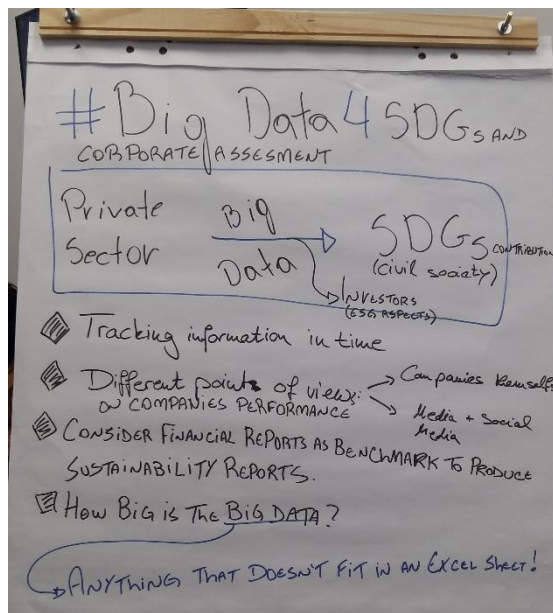 #Big Data 4 SDGs AND
CORPORATE ASSESMENT
Private Big SDGs CONTRIBUTION
Sector Data (civil society)
INVESTORS
(ESG ASPECTS)
Tracking information in time
Different points of views: Companies themselfs
ON COMPANIES PERFORMANCE Media + Social
Media
CONSIDER FINANCIAL REPORTS AS BENCHMARK TO PRODUCE
SUSTAINABILITY REPORTS.
How BIG is THE BIG DATA?
ANYTHING THAT DOESN'T FIT IN AN EXCEL SHEET!